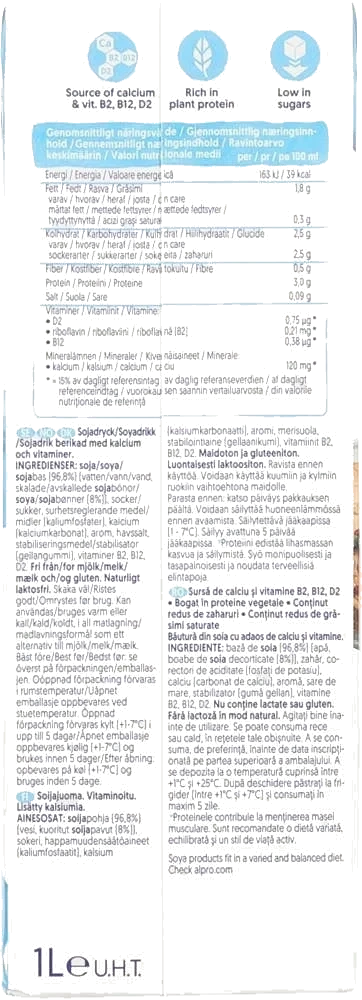 Ca
B2 B12
D2
Source of calcium
& vit. B2, B12, D2
Rich in
plant protein
Low in
sugars
Genomsnittligt näringsvärde / Gjennomsnittlig nærings-
hold / Gennemsnitligt næringsindhold / Ravintoarvo
keskimäärin / Valori nutriționale medii per / pr / pe 100 ml
Energi / Energia / Valoare energetică 163 kJ / 39 kcal
Fett / Fedt / Rasva / Grăsimi 1,8 g
varav / hvorav / heraf / josta / din care
mättat fett / mettede fettsyrer / mættede fedtsyrer /
tyydyttynyttä / acizi grași saturați 0,3 g
Kolhydrat / Karbohydrater / Kulhydrat / Hiilihydraatit / Glucide 2,5 g
varav / hvorav / heraf / josta / din care
sockerarter / sukkerarter / sokereita / zaharuri 2,5 g
Fiber / Kostfiber / Kostfibre / Ravintokuitu / Fibre 0,5 g
Protein / Proteiini / Proteine 3,0 g
Salt / Suola / Sare 0,09 g
Vitaminer / Vitamiinit / Vitamine:
• D2 0,75 µg*
• riboflavin / riboflaviini / riboflavină (B2) 0,21 mg*
• B12 0,38 µg*
Mineralämnen / Mineraler / Kivennäisaineet / Minerale:
• kalcium / kalsium / calcium / calciu 120 mg*
* = 15% av dagligt referensintag / av daglig referanseverdien / af dagligt
referenceindtag / vuorokautisen saannin vertailuarvosta / din valorile
nutriționale de referință
SE NO DK Sojadryck/Soyadrikk
/Sojadrik berikad med kalcium
och vitaminer.
INGREDIENSER: soja/soya/
sojabas (96,8%) (vatten/vann/vand,
skalade/avskallede sojabönor/
soya/sojabønner (8%)), socker/
sukker, surhetsreglerande medel/
midler (kaliumfosfater), kalcium
(kalciumkarbonat), arom, havssalt,
stabiliseringsmedel/stabilisator
(gellangummi), vitaminer B2, B12,
D2. Fri från/for mjölk/melk/
mælk och/og gluten. Naturligt
laktosfri. Skaka väl/Ristes
godt/Omrystes før brug. Kan
användas/brukes varm eller
kall/kald/koldt, i all matlagning/
madlavningsformål som ett
alternativ till mjölk/melk/mælk.
Bäst före/Best før/Bedst før: se
överst på förpackningen/emballas-
jen. Oöppnad förpackning förvaras
i rumstemperatur/Uåpnet
emballasje oppbevares ved
stuetemperatur. Öppnad
förpackning förvaras kylt (+1-7°C) i
upp till 5 dagar/Åpnet emballasje
oppbevares kjølig (+1-7°C) og
brukes innen 5 dager/Efter åbning,
opbevares på køl (+1-7°C) og
bruges inden 5 dage.
FI Soijajuoma. Vitaminoitu.
Lisätty kalsiumia.
AINESOSAT: soijapohja (96,8%)
(vesi, kuoritut soijapavut (8%)),
sokeri, happamuudensäätöaineet
(kaliumfosfaatit), kalsium
(kalsiumkarbonaatti), aromi, merisuola,
stabilointiaine (gellaanikumi), vitamiinit B2,
B12, D2. Maidoton ja gluteeniton.
Luontaisesti laktoositon. Ravista ennen
käyttöä. Voidaan käyttää kuumiin ja kylmiin
ruokiin vaihtoehtona maidolle.
Parasta ennen: katso päiväys pakkauksen
päältä. Voidaan säilyttää huoneenlämmössä
ennen avaamista. Säilytettävä jääkaapissa
(1 - 7°C). Säilyy avattuna 5 päivää
jääkaapissa. ¹Proteiini edistää lihasmassan
kasvua ja säilymistä. Syö monipuolisesti ja
tasapainoisesti ja noudata terveellisiä
elintapoja
RO Sursă de calciu și vitamine B2, B12, D2
• Bogat în proteine vegetale • Conținut
redus de zaharuri • Conținut redus de gră-
simi saturate
Băutură din soia cu adaos de calciu și vitamine.
INGREDIENTE: bază de soia (96,8%) (apă,
boabe de soia decorticate (8%)), zahăr, co-
rectori de aciditate (fosfați de potasiu),
calciu (carbonat de calciu), aromă, sare de
mare, stabilizator (gumă gellan), vitamine
B2, B12, D2. Nu conține lactate sau gluten.
Fără lactoză în mod natural. Agitați bine îna-
inte de utilizare. Se poate consuma rece
sau cald, în rețetele tale obișnuite. A se con-
suma, de preferință, înainte de data inscripți-
onată pe partea superioară a ambalajului. A
se depozita la o temperatură cuprinsă între
+1°C și +25°C. După deschidere păstrați la fri-
gider (între +1°C și +7°C) și consumați în
maxim 5 zile.
¹Proteinele contribuie la menținerea masei
musculare. Sunt recomandate o dietă variată,
echilibrată și un stil de viață activ.
Soya products fit in a varied and balanced diet.
Check alpro.com
1L e U.H.T.